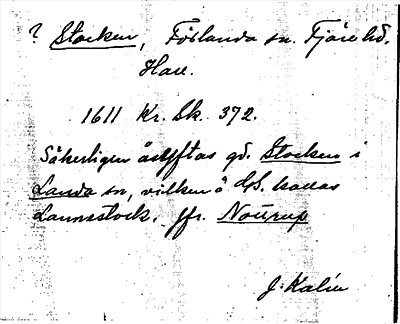 ? Stocken, Förlanda sn. Fjäre hd.
Hall.
1611 Kr. Sk. 372.
Säkerligen åsyftas gd. Stocken i
Landa sn, vilken å GS. kallas
Lannastock. Jfr. Nourup
J. Kalén